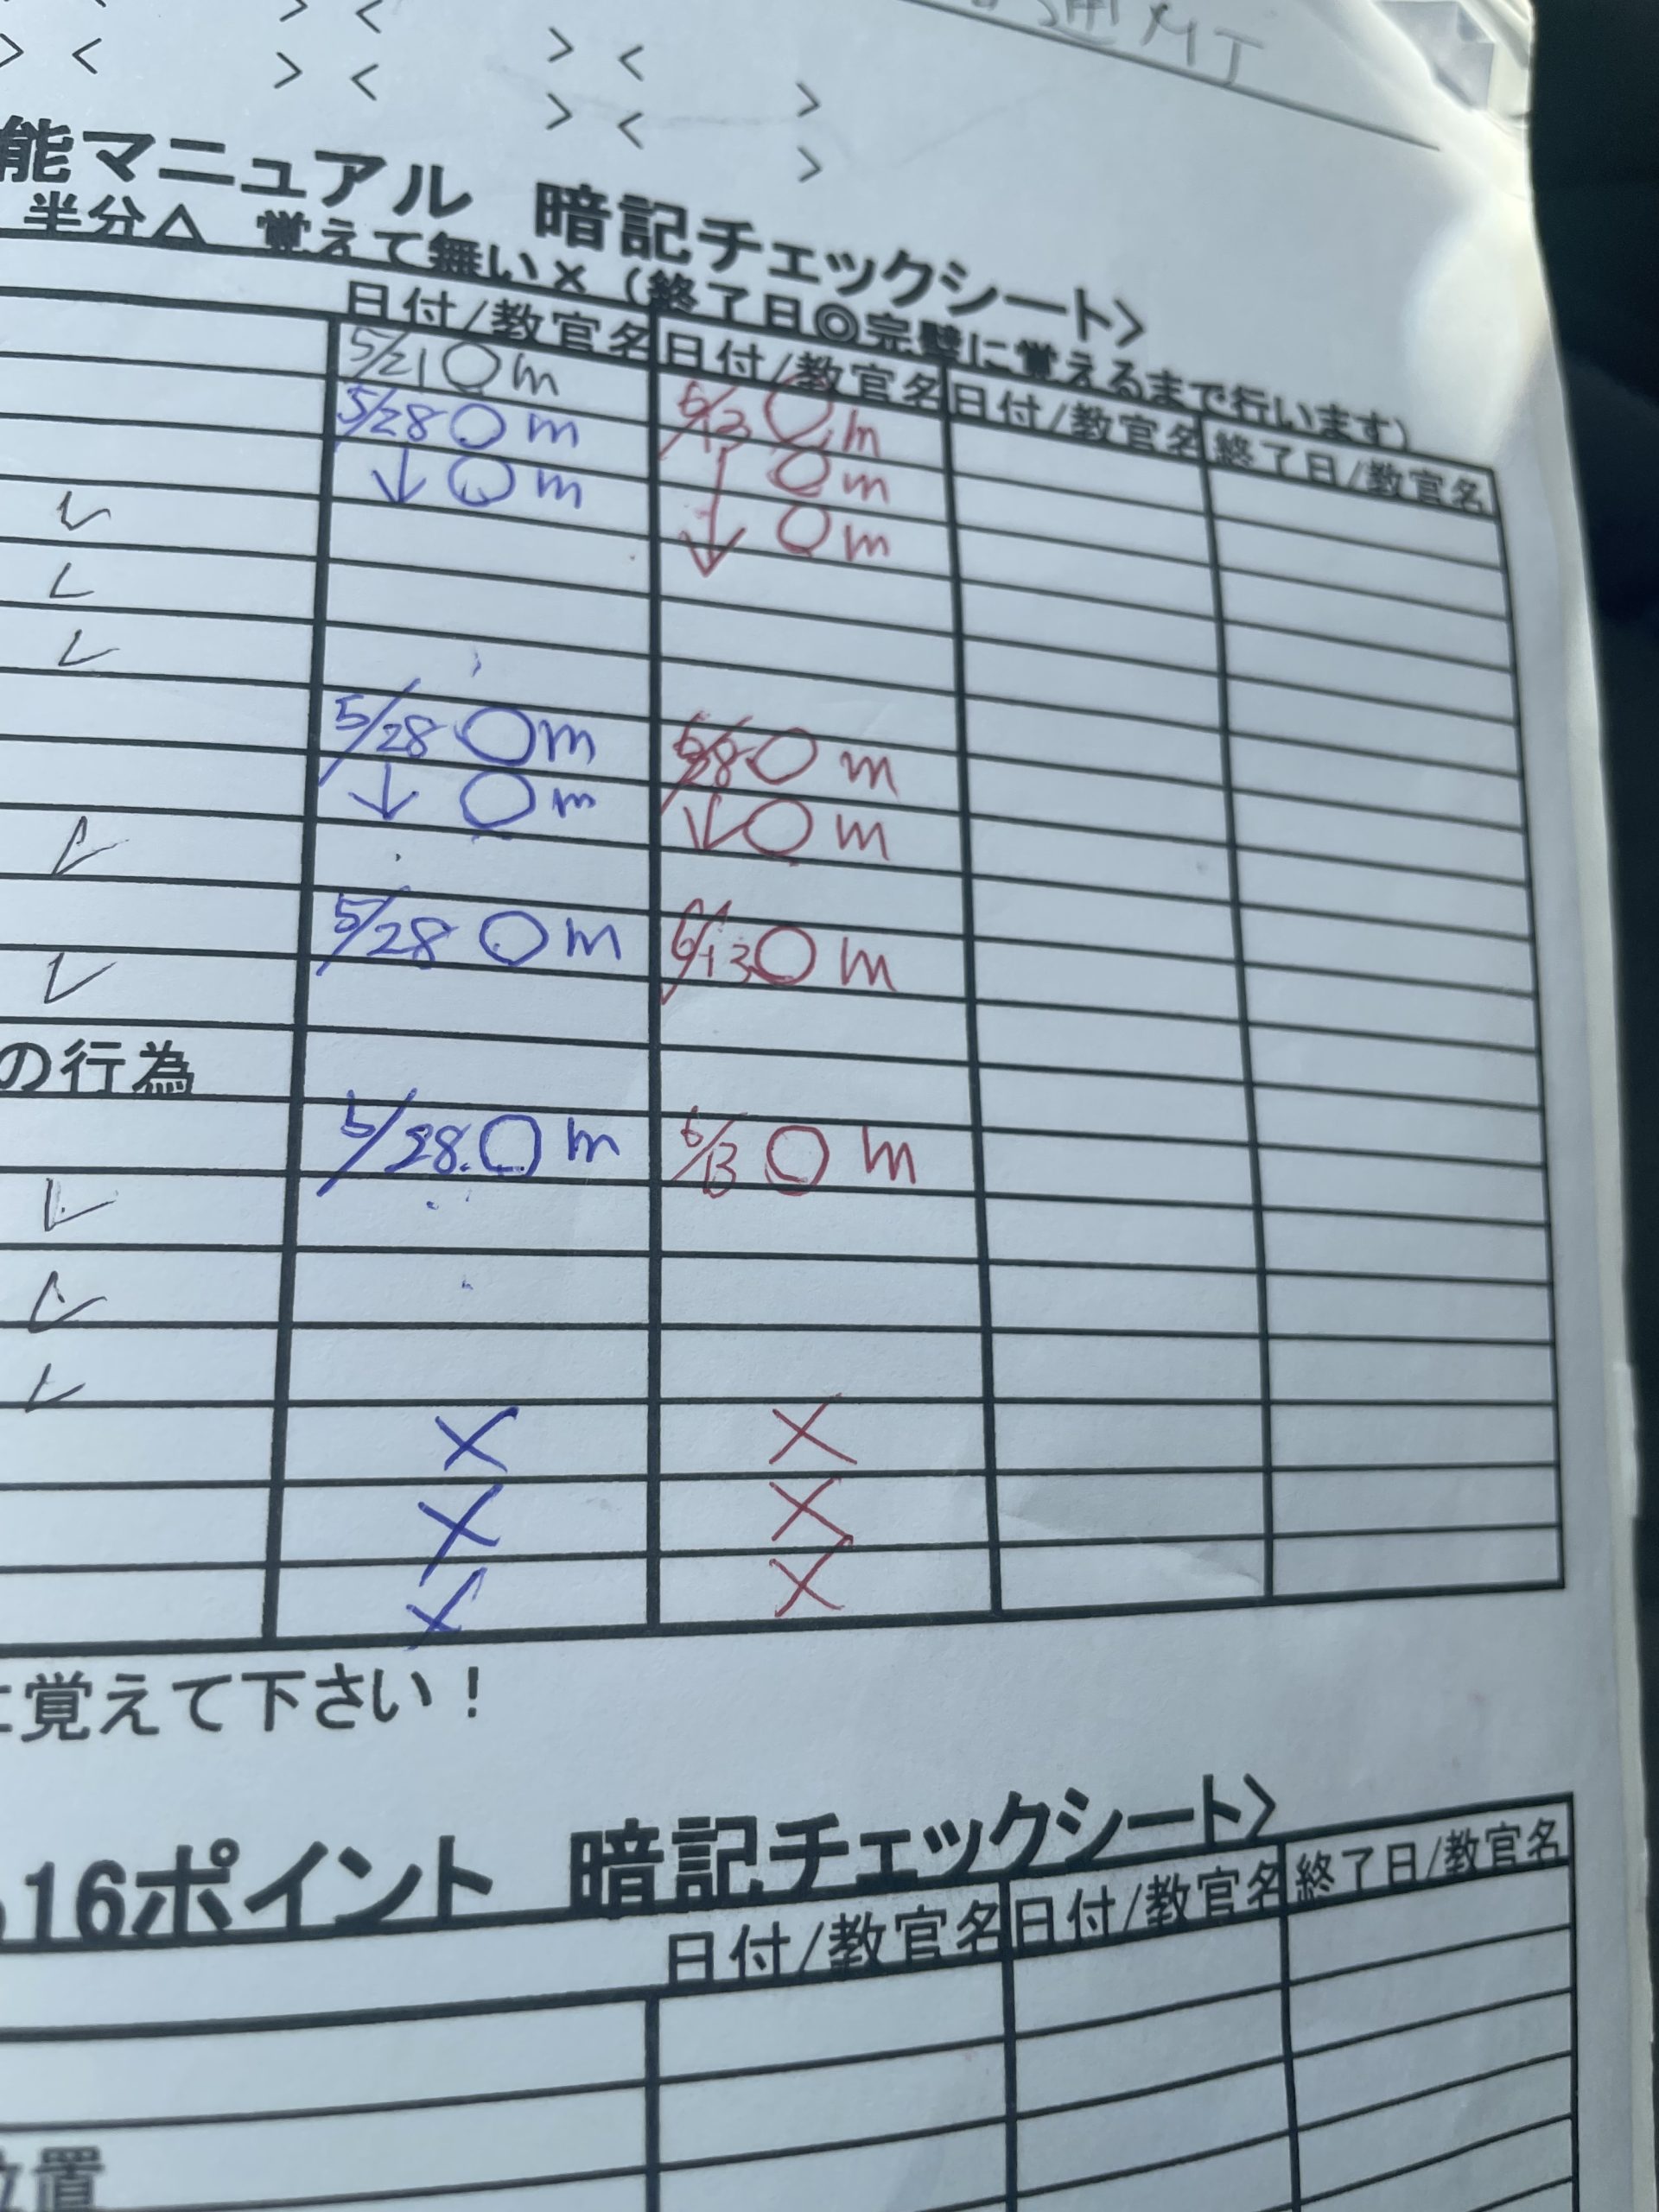 > < > < > < >
> < > < > < >
能マニュアル 暗記チェックシート>
半分△ 覚えて無い×(終了日◎完璧に覚えるまで行います)
日付/教官名 日付/教官名 日付/教官名 終了日/教官名
5/21 ○ m
5/28 ○ m 6/13 ○ m
↓ ○ m ↓ ○ m
○ m
5/28 ○ m ○ m
↓ ○ m ↓ ○ m
5/28 ○ m 6/13 ○ m
の行為
5/28 ○ m 6/13 ○ m
× ×
× ×
× ×
に覚えて下さい!
16ポイント 暗記チェックシート>
日付/教官名 日付/教官名 終了日/教官名
位置